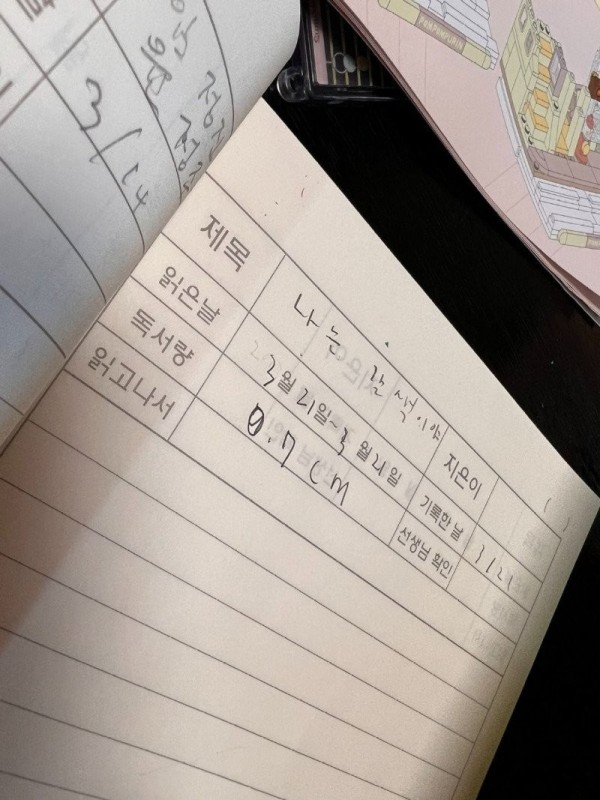 3/14
제목 나는 갈색이야 지은이 ( )
읽은날 3월 21일~3월 21일 기록한 날 3/21
독서량 0.7 cm 선생님 확인
읽고나서
POMPOMPURIN